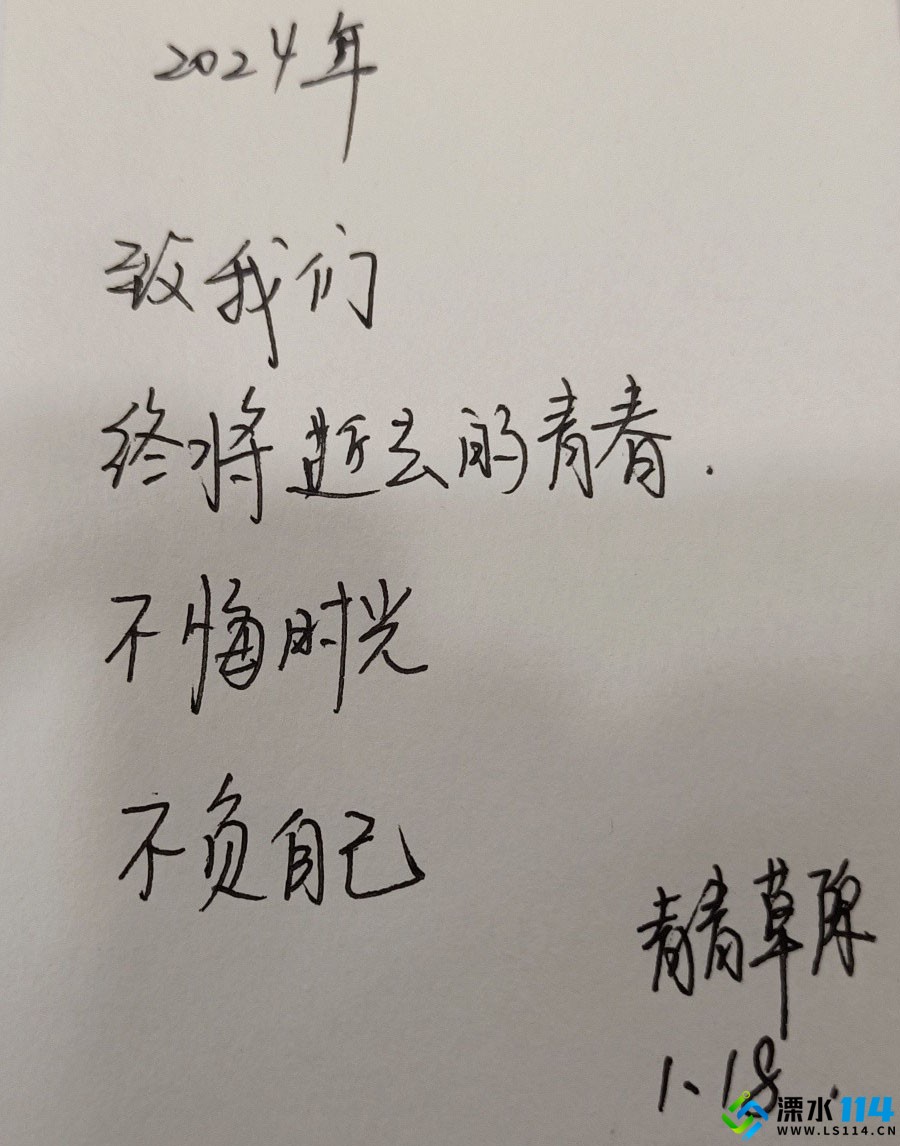 2024年
致我们
终将逝去的青春.
不悔时光
不负自己
青青草原
1.18.
溧水114
WWW.LS114.CN